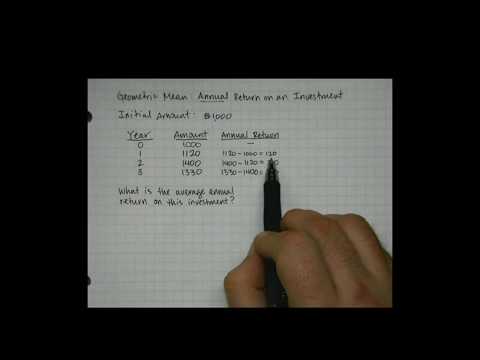 Geometric Mean: Annual Return on an Investment
Initial Amount: $1000
Year Amount Annual Return
0 1000 —
1 1120 1120-1000 = 120
2 1400 1400-1120 =
3 1330 1330-1400 =
What is the average annual
return on this investment?